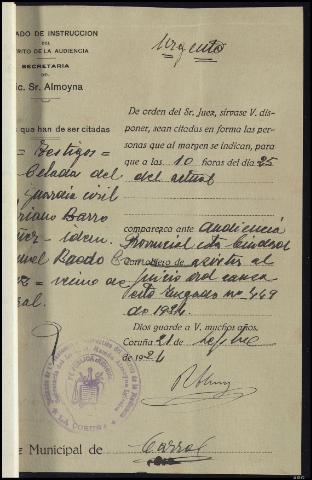 ADO DE INSTRUCCION
DEL
TRITO DE LA AUDIENCIA
SECRETARIA
DEL
ic. Sr. Almoyna
Urgente
s que han de ser citadas
= Testigos =
Celada del
guardia civil
riano Barro
idem.
= vecino de
ral.
De orden del Sr. Juez, sírvase V. dis-
poner, sean citadas en forma las per-
sonas que al margen se indican, para
que a las 10 horas del dia 25
del actual
comparezca ante Audiencia
Provincial esta Ciudad
con objeto de asistir al
juicio oral causa
este Juzgado nº 469
de 1924.
Dios guarde a V. muchos años.
Coruña 21 de
de 1926
LA CORUÑA
Municipal de Carral